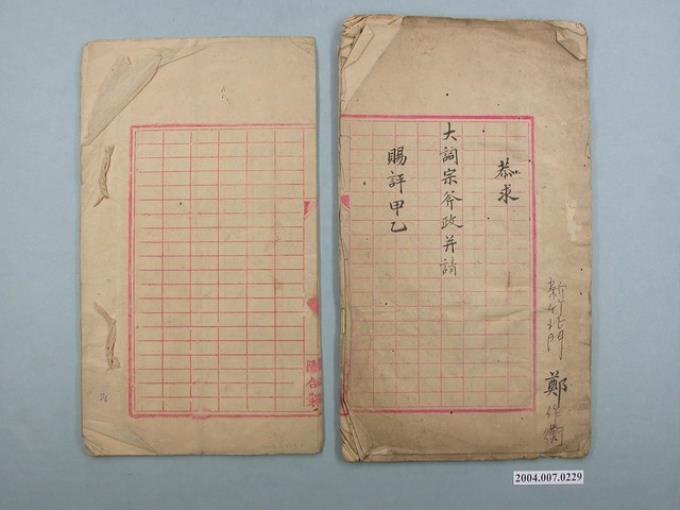 恭求
大詞宗斧政并請
賜評甲乙
新竹北門 鄭作衡
2004.007.0229